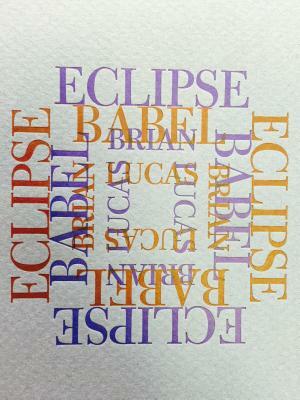 ECLIPSE
BABEL
BRIAN
LUCAS
ECLIPSE
BABEL
BRIAN
LUCAS
ECLIPSE
BABEL
BRIAN
LUCAS
ECLIPSE
BABEL
BRIAN
LUCAS